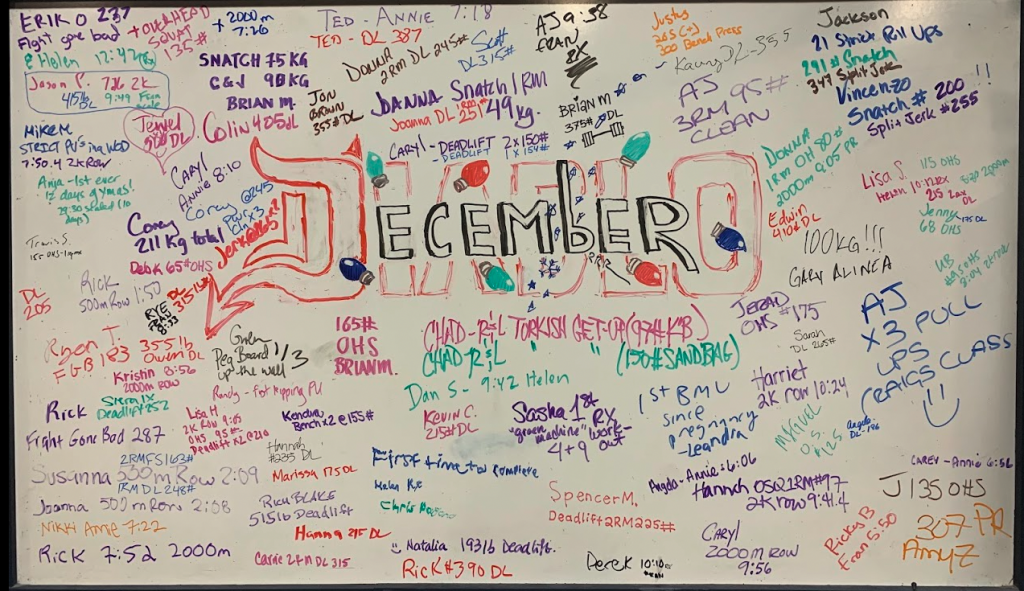 ERIK O 237
Fight gone bad
& Helen 12:47
+ OVERHEAD
SQUAT
135#
+ 2000m
7:26
TED - ANNIE 7:18
TED - DL 387
DONNA
2RM DL 245#
Scott
DL 315#
AJ 9:58
FRAN
RX
Justus
265 C+J
300 Bench Press
Kacey DL-355
Jackson
21 Strick Roll Ups
291# Snatch
347 Split Jerk
Vincenzo
Snatch # 200 !!
Split Jerk #255
Jason P. 7:26 2K
415lb DL
SNATCH 75 KG
C&J 98 KG
BRIAN M.
Colin 405 dl
JON
BROWN
355# DL
JOANNA - Snatch 1RM
49 kg.
Joanna DL 1RM 251#
BRIAN M
375# DL
AJ
3RM 95#
CLEAN
Jewel
500 DL
MIKE M
STRICT PU's ina WOD
7:50.4 2K Row
CARYL
ANNIE 8:10
CARYL - DEADLIFT 2x150#
DEADLIFT 1x154#
DONNA
1RM OH 80#
2000m 9:05 PR
Anja - 1st ever
12 days of xmas!
29:30 scaled (10
days)
Lisa S. 115 OHS
Helen 10:12 RX
215 2RX
DL
Jenny
68 OHS
175 DL
Corey @245
PWRx3
Cln
Corey
211 Kg total
Jerk@165x2
Edwin
410# DL
100KG!!!
GARY ALINEA
DECEMBER
DIABLO
PRR
Travis S.
155 OHS - 1rpm
Deb K 65# OHS
DL
205
RICK
500m Row 1:50
RYE
FRAN
8:33
DL
315 lb
Ryan T.
FGB 183
355 lb
Owen DL
Gwen
Peg Board 1/3
up the wall
165#
OHS
BRIAN M.
CHAD - R&L TURKISH GET-UP (97# KB)
CHAD - R&L " " (150# SANDBAG)
JERAD
OHS #175
Sarah
DL 265#
AJ
X3 PULL
UPS
CRAIGS CLASS
Kristin 8:56
2000m ROW
Randy - 1st kipping PU
Dan S - 9:42 Helen
Harriet
2K row 10:24
1st BMU
since
pregnancy
- Leandra
Rick
Fright Gone Bad 287
Deadlift 252
Lisa H
2K Row 9:05
OHS 95#
Deadlift x2 @210
Kendra
Bench x2 @ 155#
KEVIN C.
215# DL
Sasha 1st RX
"green machine" work-
4+9 out
MIGUEL
Angelo
DL-196
2RM FS 163#
Hannah
#235 DL
Susanna 500m Row 2:09
1RM DL 248#
Marissa 175 DL
First time to complete
Helen RX
Angelo - Annie: 6:06
CAREY - Annie 6:56
Joanna 500m Row 2:08
RICH BLAKE
515 lb Deadlift
Chris
Spencer M.
Deadlift 2RM 225#
Hannah OSQ 1RM #97
2K row 9:41.4
J 135 OHS
Nikki Annie 7:22
Hanna 215 DL
CARYL
2000m ROW
9:56
Ricky B
Fran 5:50
307 PR
Amy Z
Rick 7:52 2000m
Carrie 2RM DL 315
Natalia 193 lb Deadlift.
Rick #390 DL
Derek 10:10